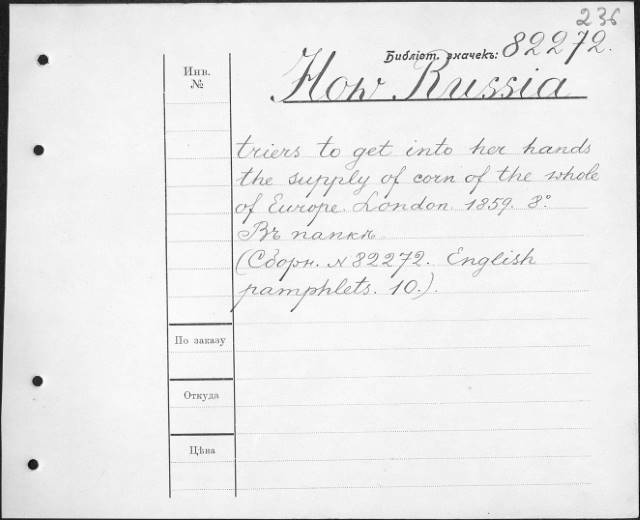 236
Библіот. значекъ: 82272.
Инв.
№
How Russia
triers to get into her hands
the supply of corn of the whole
of Europe. London. 1859. 8°.
Въ папкѣ.
(Сборн. № 82272. English
pamphlets. 10.).
По заказу
Откуда
Цѣна